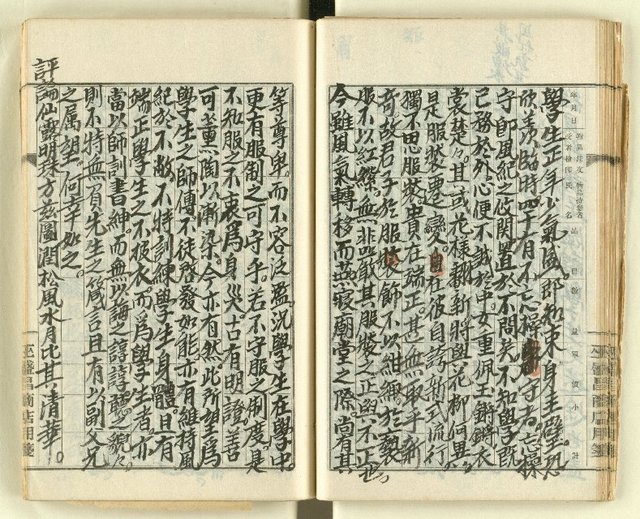 學生正年少氣風那知束身圭璧恐
欣羨臨時四十月不忘操守者忘操
守即風紀之攸關置於不問矣不知學既
己務於外心便不誠於中女重佩玉鏘鏘衣
裳楚楚其或花樣翻新將與花柳何異
是服裝遷變在彼自誇新式流行
獨不思服裝貴在端正甚無取乎新
奇故君子於服飾不以紺緅於褻
服不以紅紫無非嚴其服裝之正與不正也
今雖風氣轉移而燕寢廟堂之際尚有其
等尊卑而不容泛濫況學生在學中
更有服制之可守乎若不守服之制度是
不知服之不衷為身災古有明證善
可薰陶以漸染今亦有然此所望為
學生之師傅不徒啟發如能亦有維持風
紀於不敝不特訓練學生身體且有
端正學生之不服衣而為學生者亦
當以師訓書紳而無以誨之諄諄聽之藐藐
則不特無負先生之箴言且有以副父兄
之属望何幸如之
評論仙露明珠方茲圓潤松風水月比其清華
巫盛昌商店用箋